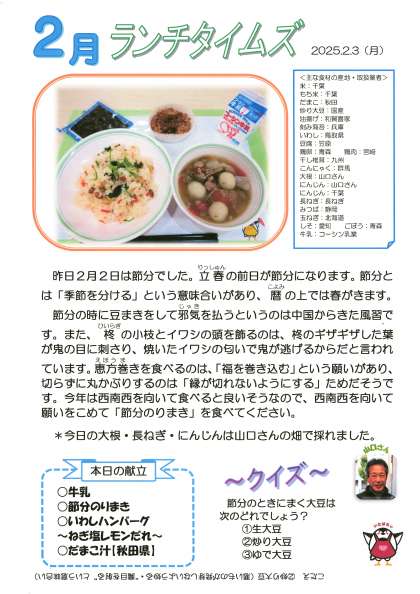 2月 ランチタイムズ
2025.2.3（月）
＜主な食材の産地・取扱業者＞
米：千葉
もち米：千葉
だまこ：秋田
炒り大豆：国産
油揚げ：和賀商家
刻み海苔：兵庫
いわし：鳥取県
豆腐：笠原
鶏卵：青森　鶏肉：宮崎
干し椎茸：九州
こんにゃく：群馬
大根：山口さん
にんじん：山口さん
にんじん：千葉
長ねぎ：長ねぎ
みつば：静岡
玉ねぎ：北海道
しそ：愛知　ごぼう：青森
牛乳：コーシン乳業
昨日２月２日は節分でした。立春の前日が節分になります。節分と
は「季節を分ける」という意味合いがあり、暦の上では春がきます。
節分の時に豆まきをして邪気を払うというのは中国からきた風習で
す。また、柊の小枝とイワシの頭を飾るのは、柊のギザギザした葉
が鬼の目に刺さり、焼いたイワシの匂いで鬼が逃げるからだと言われ
ています。恵方巻きを食べるのは、「福を巻き込む」という願いがあり、
切らずに丸かぶりするのは「縁が切れないようにする」ためだそうで
す。今年は西南西を向いて食べると良いそうなので、西南西を向いて
願いをこめて「節分のりまき」を食べてください。
＊今日の大根・長ねぎ・にんじんは山口さんの畑で採れました。
本日の献立
○牛乳
○節分のりまき
○いわしハンバーグ
～ねぎ塩レモンだれ～
○だまこ汁【秋田県】
～クイズ～
節分のときにまく大豆は
次のどれでしょう？
①生大豆
②炒り大豆
③ゆで大豆
山口さん
こたえ　②炒り大豆（悪いものが芽が出ないよう炒る・“魔目を射る”という意味合い）